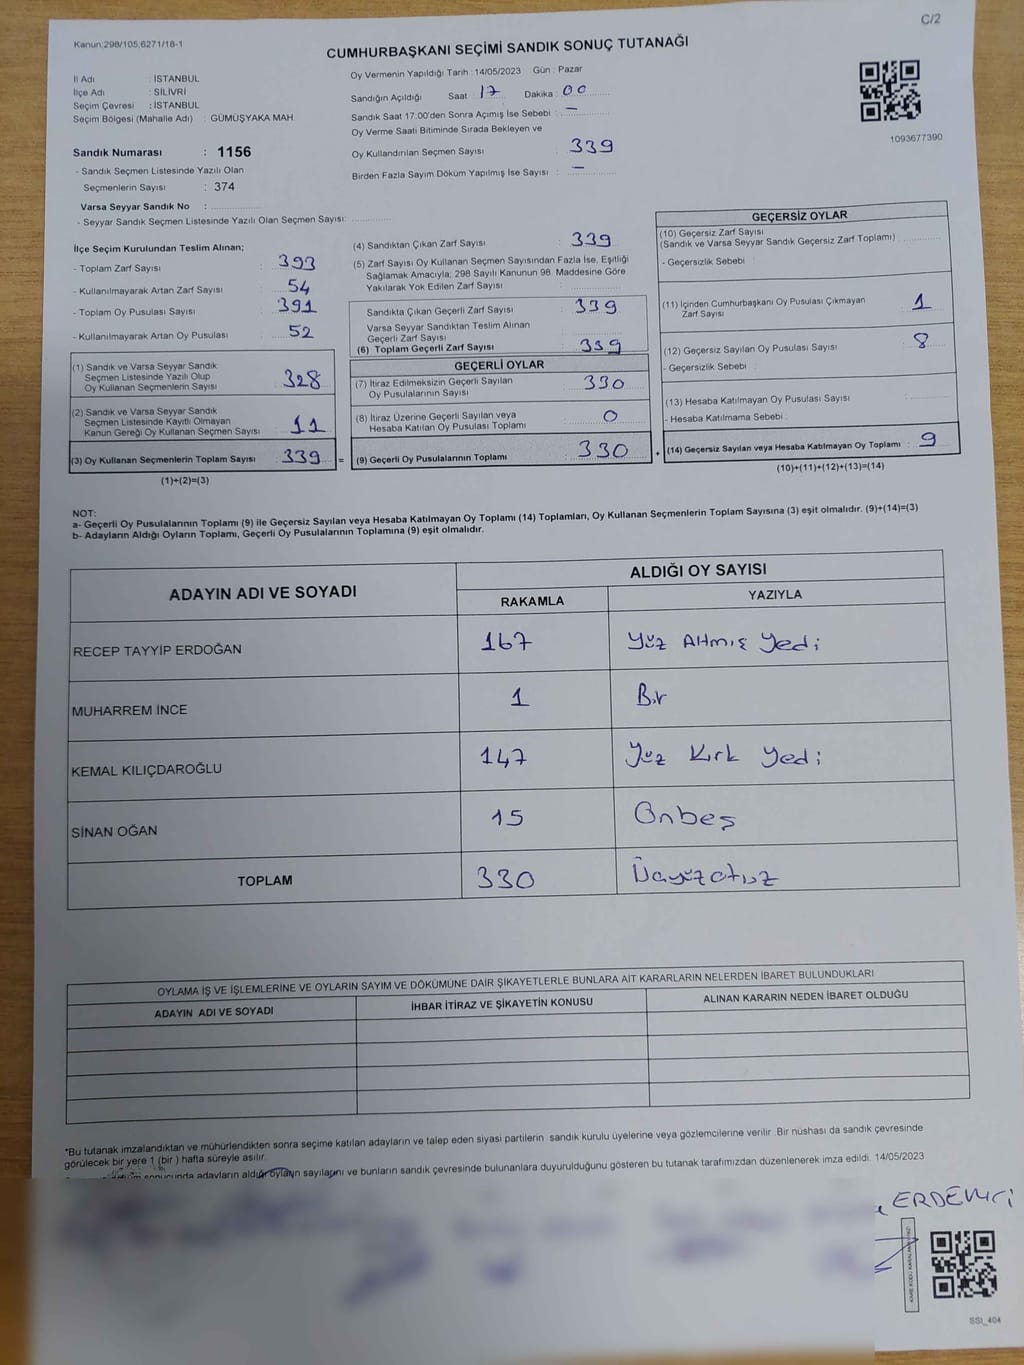 C/2
Kanun:298/105,6271/18-1
CUMHURBAŞKANI SEÇİMİ SANDIK SONUÇ TUTANAĞI
İl Adı : İSTANBUL
İlçe Adı : SİLİVRİ
Seçim Çevresi : İSTANBUL
Seçim Bölgesi (Mahalle Adı) : GÜMÜŞYAKA MAH.
Sandık Numarası : 1156
- Sandık Seçmen Listesinde Yazılı Olan
Seçmenlerin Sayısı : 374
Varsa Seyyar Sandık No :
- Seyyar Sandık Seçmen Listesinde Yazılı Olan Seçmen Sayısı:
Oy Vermenin Yapıldığı Tarih : 14/05/2023 Gün : Pazar
Sandığın Açıldığı Saat 17 Dakika : 00
Sandık Saat 17:00'den Sonra Açımış İse Sebebi : —
Oy Verme Saati Bitiminde Sırada Bekleyen ve
Oy Kullandırılan Seçmen Sayısı : 339
Birden Fazla Sayım Döküm Yapılmış İse Sayısı : —
1093677390
İlçe Seçim Kurulundan Teslim Alınan;
- Toplam Zarf Sayısı : 393
- Kullanılmayarak Artan Zarf Sayısı : 54
- Toplam Oy Pusulası Sayısı : 391
- Kullanılmayarak Artan Oy Pusulası : 52
(1) Sandık ve Varsa Seyyar Sandık
Seçmen Listesinde Yazılı Olup
Oy Kullanan Seçmenlerin Sayısı : 328
(2) Sandık ve Varsa Seyyar Sandık
Seçmen Listesinde Kayıtlı Olmayan
Kanun Gereği Oy Kullanan Seçmen Sayısı : 11
(3) Oy Kullanan Seçmenlerin Toplam Sayısı : 339 =
(1)+(2)=(3)
(4) Sandıktan Çıkan Zarf Sayısı : 339
(5) Zarf Sayısı Oy Kullanan Seçmen Sayısından Fazla İse, Eşitliği
Sağlamak Amacıyla; 298 Sayılı Kanunun 98. Maddesine Göre
Yakılarak Yok Edilen Zarf Sayısı :
Sandıkta Çıkan Geçerli Zarf Sayısı : 339
Varsa Seyyar Sandıktan Teslim Alınan
Geçerli Zarf Sayısı :
(6) Toplam Geçerli Zarf Sayısı : 339
GEÇERLİ OYLAR
(7) İtiraz Edilmeksizin Geçerli Sayılan
Oy Pusulalarının Sayısı : 330
(8) İtiraz Üzerine Geçerli Sayılan veya
Hesaba Katılan Oy Pusulası Toplamı : 0
(9) Geçerli Oy Pusulalarının Toplamı : 330 +
GEÇERSİZ OYLAR
(10) Geçersiz Zarf Sayısı
(Sandık ve Varsa Seyyar Sandık Geçersiz Zarf Toplamı) :
- Geçersizlik Sebebi :
(11) İçinden Cumhurbaşkanı Oy Pusulası Çıkmayan
Zarf Sayısı : 1
(12) Geçersiz Sayılan Oy Pusulası Sayısı : 8
- Geçersizlik Sebebi :
(13) Hesaba Katılmayan Oy Pusulası Sayısı :
- Hesaba Katılmama Sebebi :
(14) Geçersiz Sayılan veya Hesaba Katılmayan Oy Toplamı : 9
(10)+(11)+(12)+(13)=(14)
NOT:
a- Geçerli Oy Pusulalarının Toplamı (9) ile Geçersiz Sayılan veya Hesaba Katılmayan Oy Toplamı (14) Toplamları, Oy Kullanan Seçmenlerin Toplam Sayısına (3) eşit olmalıdır. (9)+(14)=(3)
b- Adayların Aldığı Oyların Toplamı, Geçerli Oy Pusulalarının Toplamına (9) eşit olmalıdır.
ADAYIN ADI VE SOYADI ALDIĞI OY SAYISI
RAKAMLA YAZIYLA
RECEP TAYYİP ERDOĞAN 167 Yüz Altmış Yedi
MUHARREM İNCE 1 Bir
KEMAL KILIÇDAROĞLU 147 Yüz Kırk Yedi
SİNAN OĞAN 15 Onbeş
TOPLAM 330 Üçyüzotuz
OYLAMA İŞ VE İŞLEMLERİNE VE OYLARIN SAYIM VE DÖKÜMÜNE DAİR ŞİKAYETLERLE BUNLARA AİT KARARLARIN NELERDEN İBARET BULUNDUKLARI
ADAYIN ADI VE SOYADI İHBAR İTİRAZ VE ŞİKAYETİN KONUSU ALINAN KARARIN NEDEN İBARET OLDUĞU
*Bu tutanak imzalandıktan ve mühürlendikten sonra seçime katılan adayların ve talep eden siyasi partilerin sandık kurulu üyelerine veya gözlemcilerine verilir .Bir nüshası da sandık çevresinde
görülecek bir yere 1 (bir ) hafta süreyle asılır.
sonucunda adayların aldığı oyların sayılarını ve bunların sandık çevresinde bulunanlara duyurulduğunu gösteren bu tutanak tarafımızdan düzenlenerek imza edildi. 14/05/2023
SSI_404